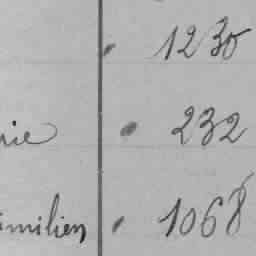 1230
rie 232
milien 1068